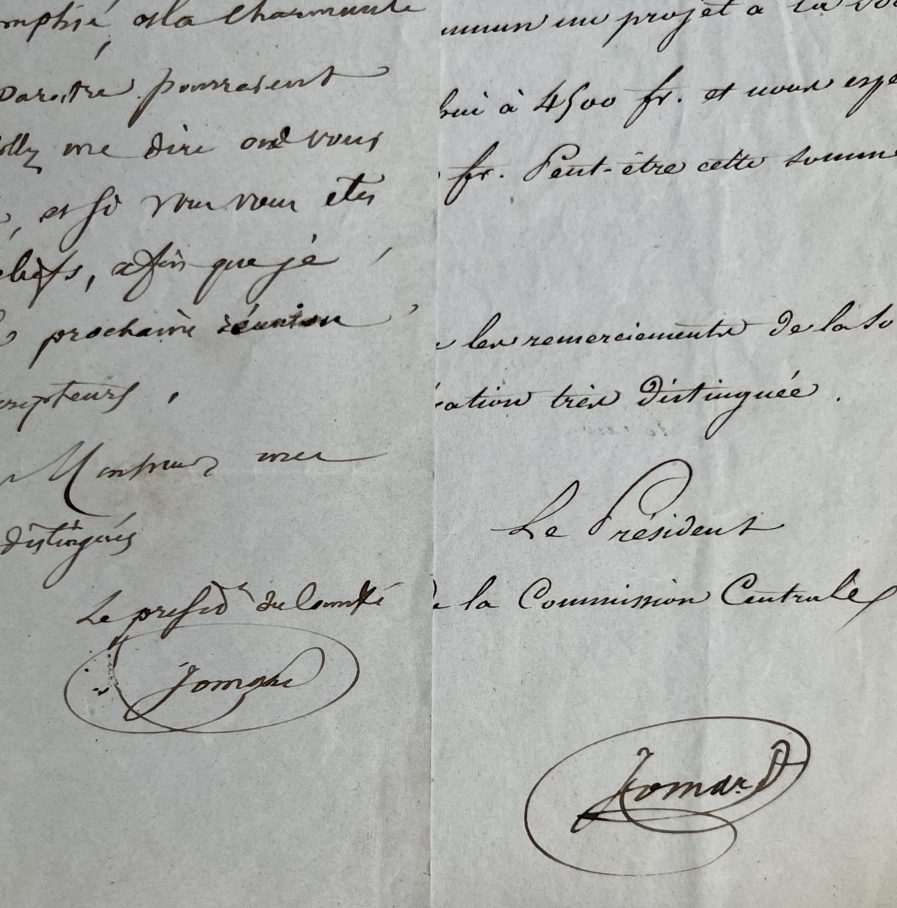 et la charmante
paroître pourraient
me dire où vous
et si vous vous êtes
afin que je
prochaine réunion
Monsieur mes
distingués
Le présid^t du Comité
Jomard
un projet à la
à 4500 fr. et nous espé
fr. Peut-être cette somm
les remerciements de la So
ation très distinguée.
Le Président
la Commission Centrale
Jomard